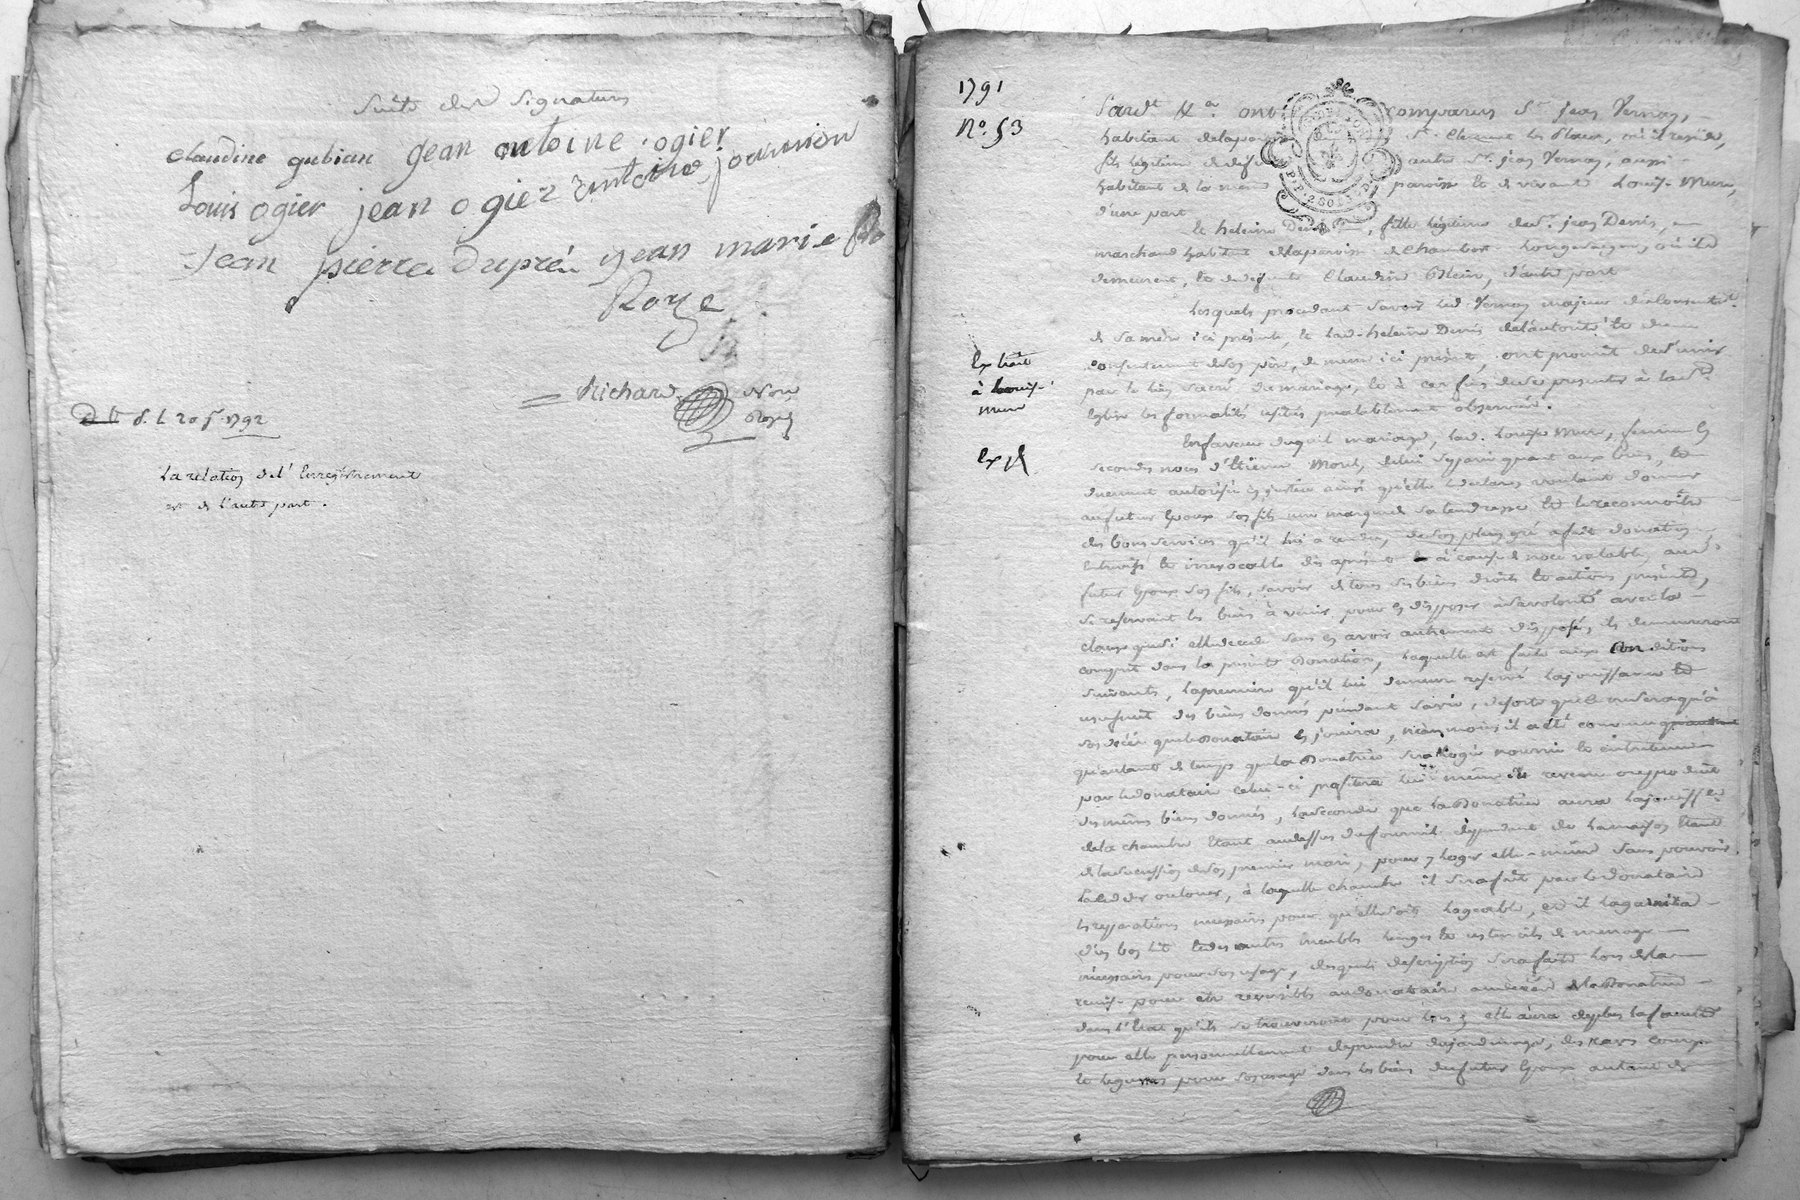 Suite des Signatures
claudine gubian jean antoine ogier
Louis ogier jean ogier antoine
Jean pierre Dupré jean marie
Roze
Richard Nore
Royal
1792
La relation de l'Enregistrement
est de l'autre part.
1791
N.° 53
Pardt. ont comparus Sr. Jean Vernay,
habitant de la St. Clement les Places, où il reside,
fils legitime de deff autre Sr. jean Vernay, aussi
habitant de la meme paroisse et de vivante Louise Mure,
d'une part
et heleine Denis, fille legitime de Sr. jean Denis,
marchand habitant de la paroisse de Chambost Longessaigne, où ils
demeurent, et de deffunte Claudine Blein, d'autre part
Lesquels procedant savoir led. Vernay majeur du consentt.
de sa mere ici presente, et lad. heleine Denis de l'autorité et du
consentement de son père, de meme ici présent, ont promit de s'unir
Extrait
à Louise
mure
par le lien sacré du mariage, et à ces fins de se presenter à
Eglise les formalités usités prealablement observées.
Exp
En faveur duquel mariage, lad. Louise Mure, femme en
secondes noces d'Etienne Mont, de lui separée quant aux biens, et
duement autorisée en justice ainsi qu'elle le declare voulant donner
au futur Epoux son fils une marque de sa tendresse et le reconnoitre
des bons services qu'il lui a rendu, de son plein gré a fait donation
Entrevifs et irrevocable dès apresent et à cause de noce valable, aud.
futur Epoux son fils, savoir de tous ses biens droits et actions présents,
se reservant les biens à venir pour en disposer à sa volonté avec la
clause que si elle decede sans en avoir autrement disposé, ils demeureront
compris dans la presente Donation, laquelle est faite aux conditions
suivantes, la premiere qu'il lui demeure reservé la jouissance et
usufruit des biens donnés pendant sa vie, desorte que ce ne sera qu'à
son décès que le Donataire en jouira, néanmoins il a été convenu
qu'autant de temps que la Donatrice sera logée nourrie et entretenue
par le donataire celui-ci profitera lui même des revenu
des mêmes biens donnés, la seconde que la Donatrice aura la jouissce.
de la chambre etant au dessus du fournil dependant de la maison etant
de la succession de son premier mari, pour y loger elle-même sans pouvoir
la ceder ou louer, à laquelle chambre il sera fait par le donataire
les reparations necessaires pour qu'elle soit logeable, et il la garnira
d'un bon lit et des autres meubles linges et ustenciles de menage
necessaires pour son usage, desquels description sera faite lors de la
remise pour etre reversible au donataire au décès de la Donatrice
dans l'Etat qu'ils se trouveront pour lors; elle aura de plus la faculté
pour elle personnellement de prendre du jardinage, des raves courges
et legumes pour son usage dans les biens du futur Epoux autant de